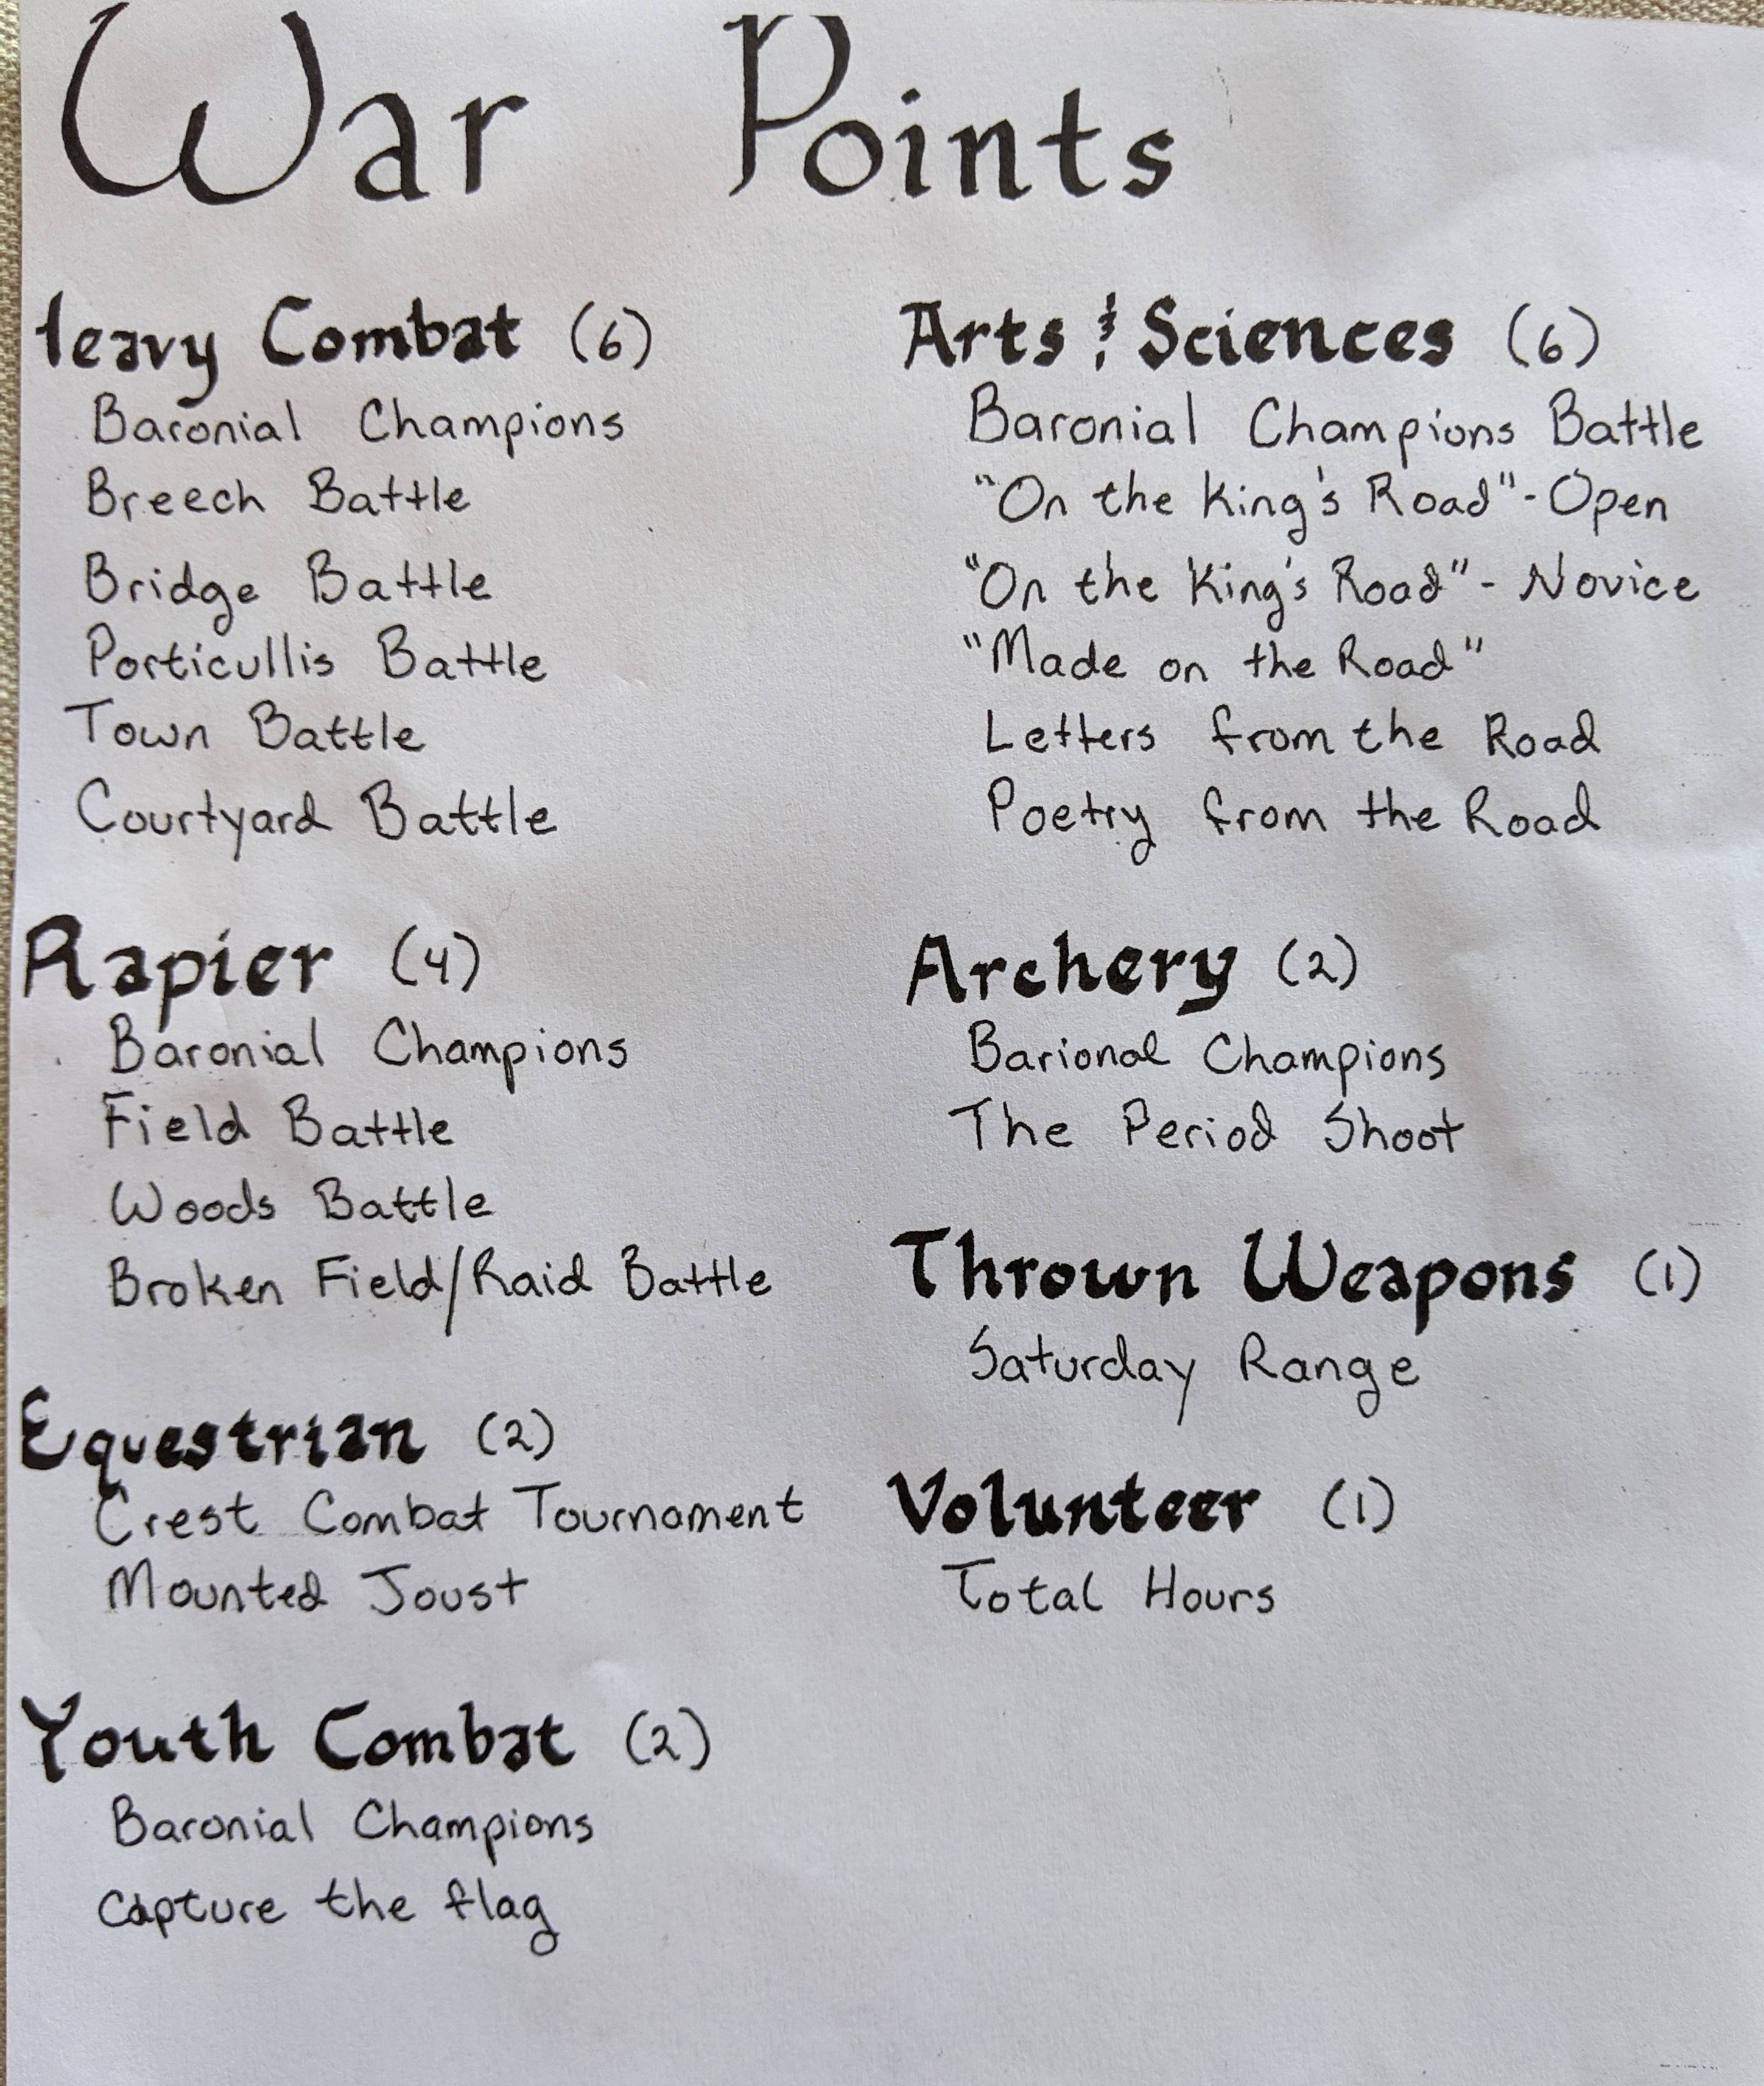 War Points
Heavy Combat (6)
Baronial Champions
Breech Battle
Bridge Battle
Porticullis Battle
Town Battle
Courtyard Battle
Rapier (4)
Baronial Champions
Field Battle
Woods Battle
Broken Field/Raid Battle
Equestrian (2)
Crest Combat Tournament
Mounted Joust
Youth Combat (2)
Baronial Champions
Capture the flag
Arts & Sciences (6)
Baronial Champions Battle
"On the King's Road"-Open
"On the King's Road"- Novice
"Made on the Road"
Letters from the Road
Poetry from the Road
Archery (2)
Barional Champions
The Period Shoot
Thrown Weapons (1)
Saturday Range
Volunteer (1)
Total Hours